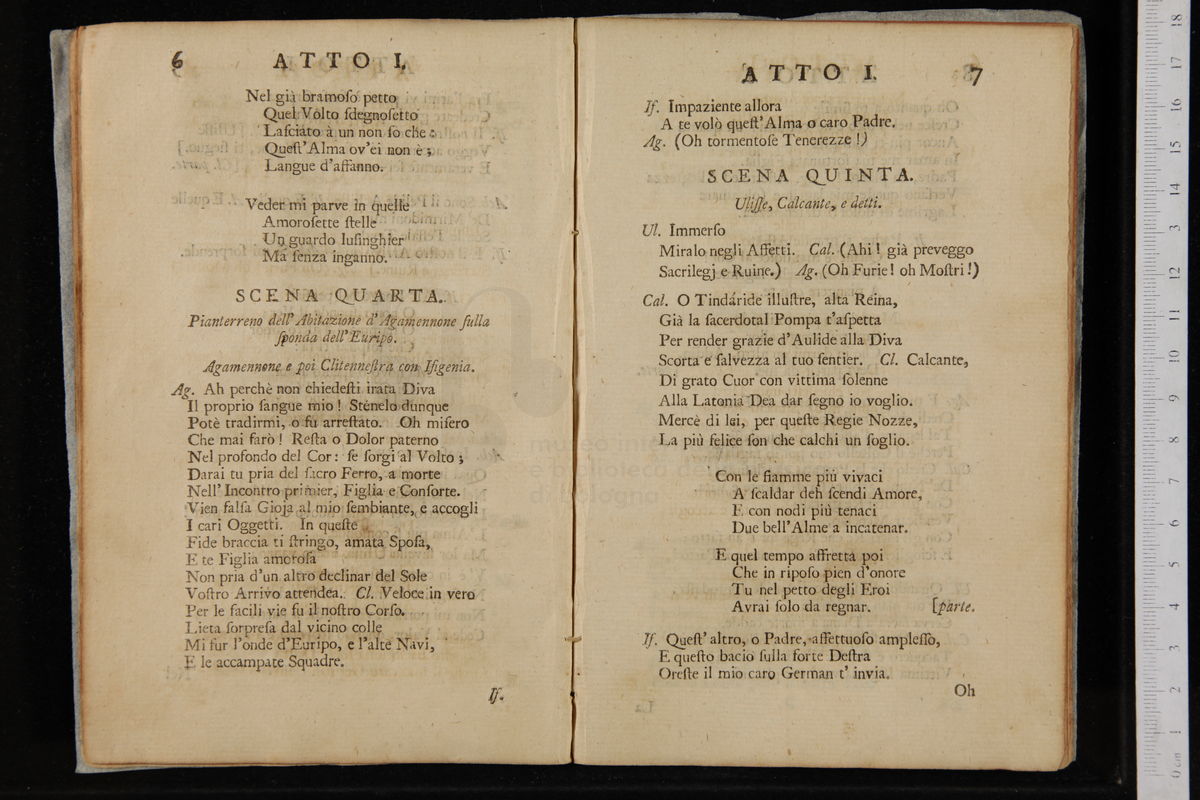 6 ATTO I.
Nel già bramoſo petto
Quel Volto ſdegnoſetto
Laſciato à un non ſo che :
Queſt'Alma ov'ei non è ;
Langue d'affanno.
Veder mi parve in quelle
Amoroſette ſtelle
Un guardo luſinghier
Ma ſenza inganno.
SCENA QUARTA.
Pianterreno dell'Abitazione d'Agamennone ſulla
ſponda dell'Euripo.
Agamennone e poi Clitenneſtra con Ifigenia.
Ag. Ah perchè non chiedeſti irata Diva
Il proprio ſangue mio ! Sténelo dunque
Potè tradirmi, o fu arreſtato. Oh miſero
Che mai farò ! Reſta o Dolor paterno
Nel profondo del Cor : ſe ſorgi al Volto ;
Darai tu pria del ſacro Ferro, a morte
Nell'Incontro primier, Figlia e Conſorte.
Vien falſa Gioja al mio ſembiante, e accogli
I cari Oggetti. In queſte
Fide braccia ti ſtringo, amata Spoſa,
E te Figlia amoroſa
Non pria d'un altro declinar del Sole
Voſtro Arrivo attendea. Cl. Veloce in vero
Per le facili vie fu il noſtro Corſo.
Lieta ſorpreſa dal vicino colle
Mi fur l'onde d'Euripo, e l'alte Navi,
E le accampate Squadre.
If.
ATTO I. 7
If. Impaziente allora
A te volò queſt'Alma o caro Padre.
Ag. (Oh tormentoſe Tenerezze !)
SCENA QUINTA.
Uliſſe, Calcante, e detti.
Ul. Immerſo
Miralo negli Affetti. Cal. (Ahi ! già preveggo
Sacrilegj e Ruine.) Ag. (Oh Furie ! oh Moſtri !)
Cal. O Tindáride illuſtre, alta Reina,
Già la ſacerdotal Pompa t'aſpetta
Per render grazie d'Aulide alla Diva
Scorta e ſalvezza al tuo ſentier. Cl. Calcante,
Di grato Cuor con vittima ſolenne
Alla Latonia Dea dar ſegno io voglio.
Mercè di lei, per queſte Regie Nozze,
La più felice ſon che calchi un ſoglio.
Con le fiamme più vivaci
A ſcaldar deh ſcendi Amore,
E con nodi più tenaci
Due bell'Alme a incatenar.
E quel tempo affretta poi
Che in ripoſo pien d'onore
Tu nel petto degli Eroi
Avrai ſolo da regnar. [parte.
If. Queſt'altro, o Padre, affettuoſo ampleſſo,
E queſto bacio ſulla forte Deſtra
Oreſte il mio caro German t'invia.
Oh